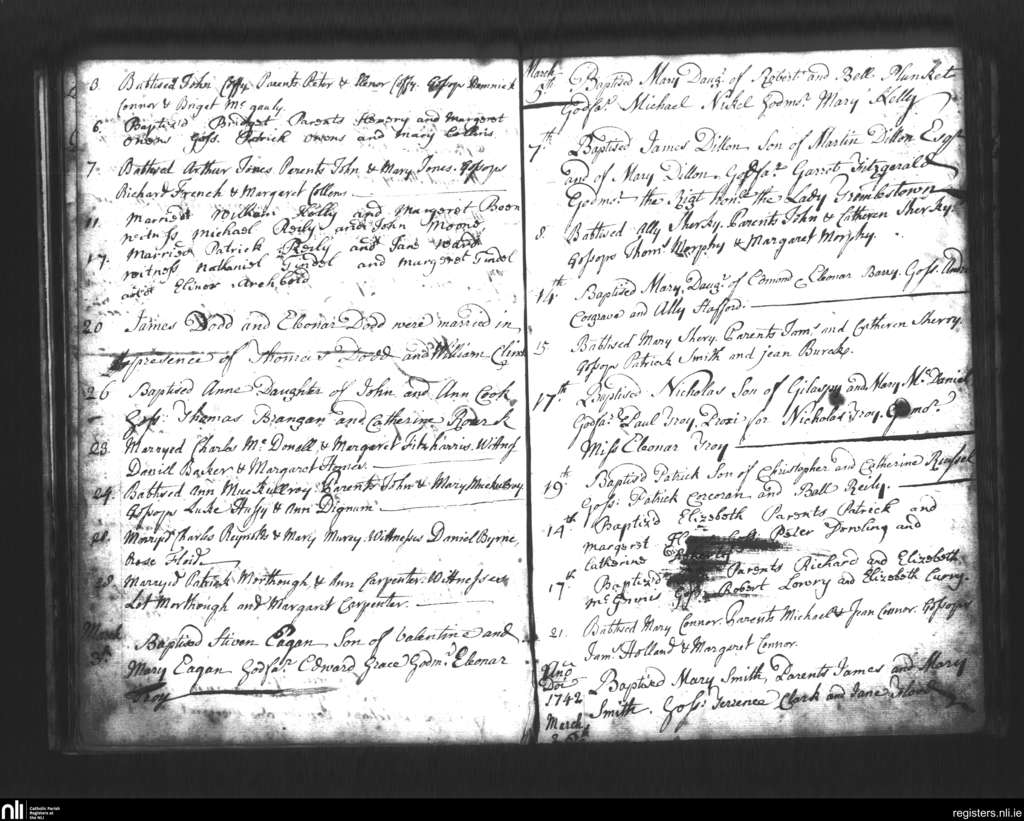 3. Babtised John Coffy Parents Peter & Elenor Coffy. Gossops Dominick
Connor & Briget Mc gauly
6. Baptis'd Bridget Parents Henery and Margeret
Owens Goss. Patrick Owens and Mary
7. Babtised Arthur Jones Perents John & Mary Jones. Gossops
Richard French & Margeret Collens
11. Married William Kelly and Margeret
witness Michael Reily and John Moone
17. Married Patrick Reily and Jane Ward
witness Nathaniel Tindel and Margeret Tindel
and Elinor Archbold
20 James Dodd and Eleonar Dodd were married in
presence of Thomas Dodd and William Clinch
26 Baptised Anne Daughter of John and Ann Cook
Goss: Thomas Brangan and Catherine Rourk
23. Merryed Charls Mc Donell & Margeret Fitzharris. Wittness
David Barker & Margaret
24. Babtised Ann MucKullroy. Parents John & Mary Muckulroy
Gossops Luke Hussy & Ann Dignum
28. Merryd Charles Reynolds & Mary Muray. Wittnesses Daniel Byrne,
Rose Floid
28. Merryd Patrick Morthough & Ann Carpenter. Wittnesses
Lot Morthough and Margaret Carpenter.
March
3d. Baptised Stiven Eagan Son of Valentine and
Mary Eagan Godfar. Edward Grace Godmr. Eleonar
Troy
March
5th Baptised Mary Daugr. of Robert and Bell Plunket
Godfar. Michael Nickl Godmr. Mary Kelly
7th Baptised James Dillon Son of Martin Dillon Esqr
and of Mary Dillon. Godfar. Garrot Fitzgerald
Godmr. the Rigt. honrle. the Lady Trimbestown
8. Babtised Ally Shersky. Parents John & Catheren Shersky.
Gossops Thoms. Morphy & Margaret Morphy.
14th Baptised Mary Daugr. of Edmond Eleonar Barry. Goss. Andrw
Cosgrave and Ally Stafford
15 Babtised Mary Shery. Parents Jams. and Catheren Sherry.
Gossops Patrick Smith and jean Burcke.
17th Baptised Nicholas Son of Gilaspy and Mary Mc. Daniel
Godfar. Paul Troy, Proxi for Nicholas Troy. Godmr.
Miss Eleonar Troy
19th Baptisd Patrick Son of Christopher and Catherine Russel
Goss: Patrick Corcoran and Ball Reily.
14th Baptiz'd Elizebeth Parents Patrick and
margaret Peter Dowling and
Catherine
17th Baptiz'd Parents Richard and Elizebeth
McGinnis Goss. Robert Lowry and Elizebeth Curry.
21. Babtised Mary Connor. Parents Michael & Jean Connor. Gossops
Jams. Holland & Margeret Connor.
Anno
Doi
1742
March
Baptised Mary Smith, Parents James and Mary
Smith. Goss: Terrence Clark and Jane
nli
Catholic Parish
Registers at
the NLI
registers.nli.ie